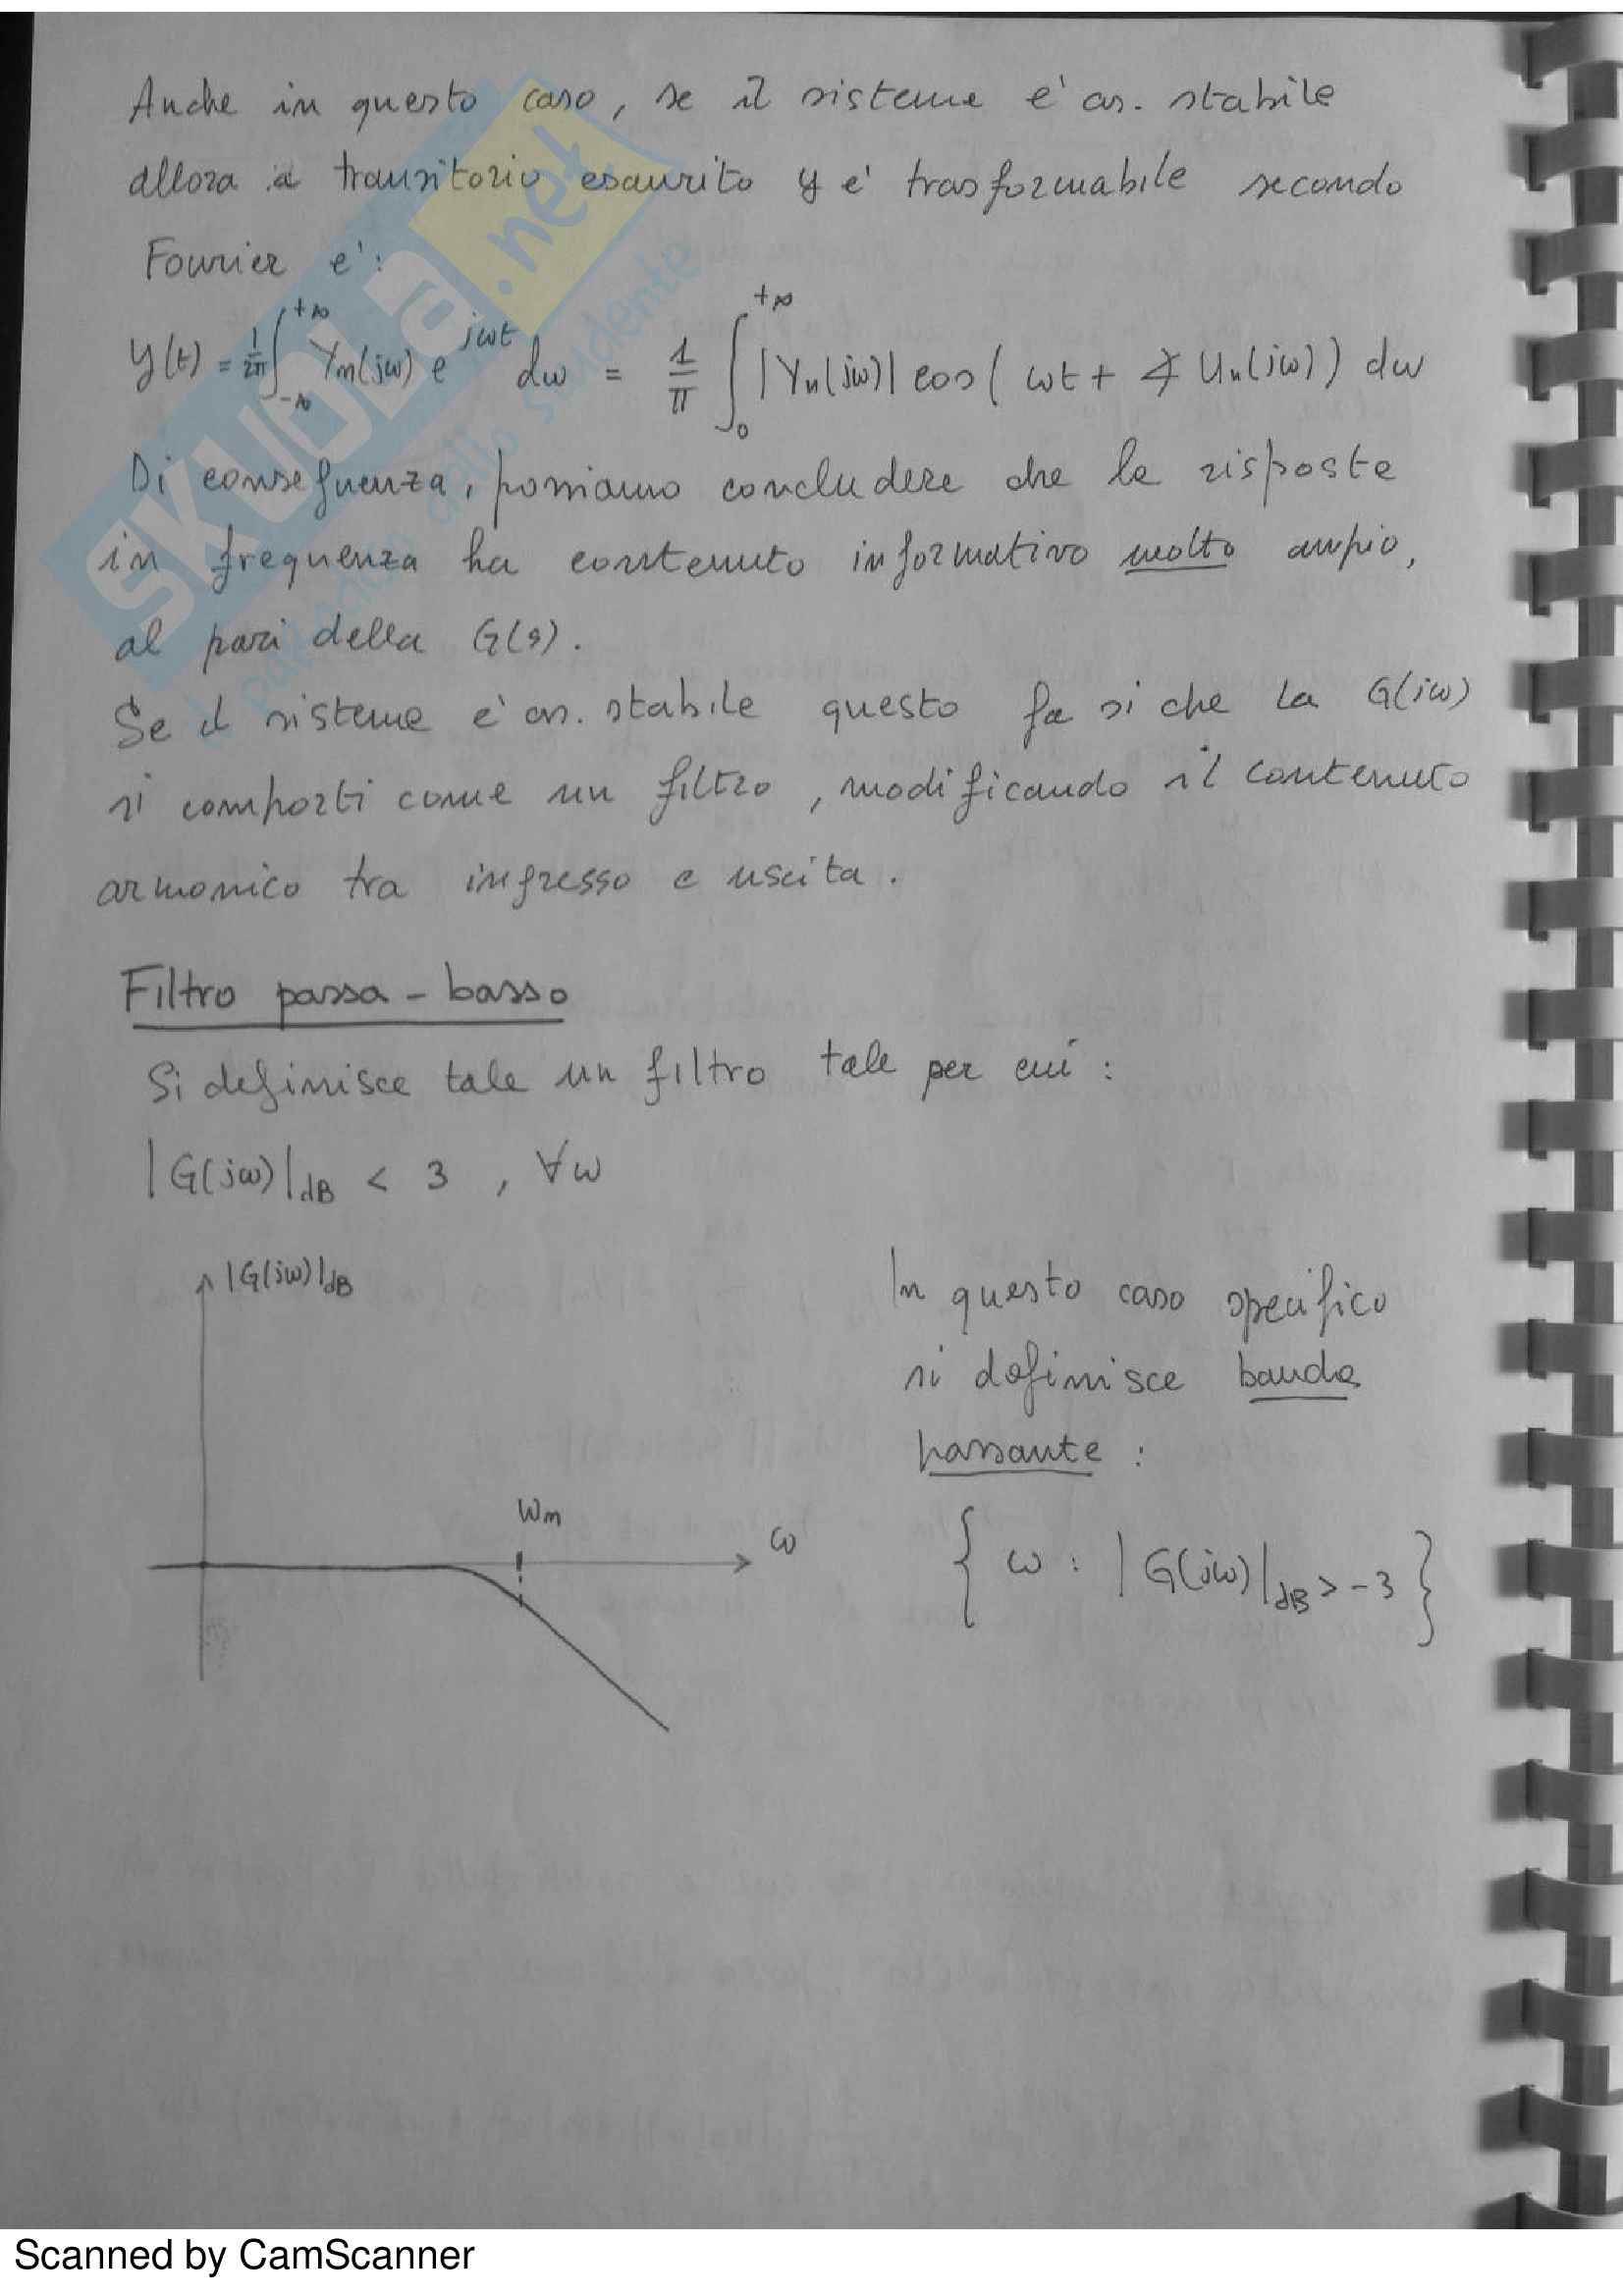 Anche in questo caso, se il sistema e' as. stabile
allora a transitorio esaurito y e' trasformabile secondo
Fourier e':
y(t) = 1/2π ∫_{-∞}^{+∞} Y_m(jω) e^{jωt} dω = 1/π ∫_0^{+∞} |Y_n(jω)| cos( ωt + ∢ U_n(jω)) dω
Di conseguenza, possiamo concludere che la risposta
in frequenza ha contenuto informativo molto ampio,
al pari della G(s).
Se il sistema e' as. stabile questo fa si che la G(jω)
si comporti come un filtro, modificando il contenuto
armonico tra ingresso e uscita.
Filtro passa-basso
Si definisce tale un filtro tale per cui :
|G(jω)|_dB < 3 , ∀ω
|G(jω)|_dB
ω_m
ω
In questo caso specifico
si definisce banda
passante :
{ ω : |G(jω)|_dB > -3 }
SKUOLA.net
il paradiso dello studente
Scanned by CamScanner